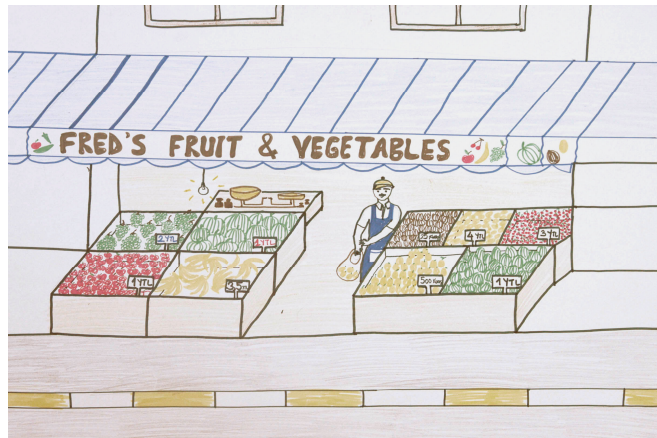 FRED'S FRUIT & VEGETABLES
2 YTL
1 YTL
4 YTL
3 YTL
1 YTL
3.5 YTL
500 Kuruş
1 YTL